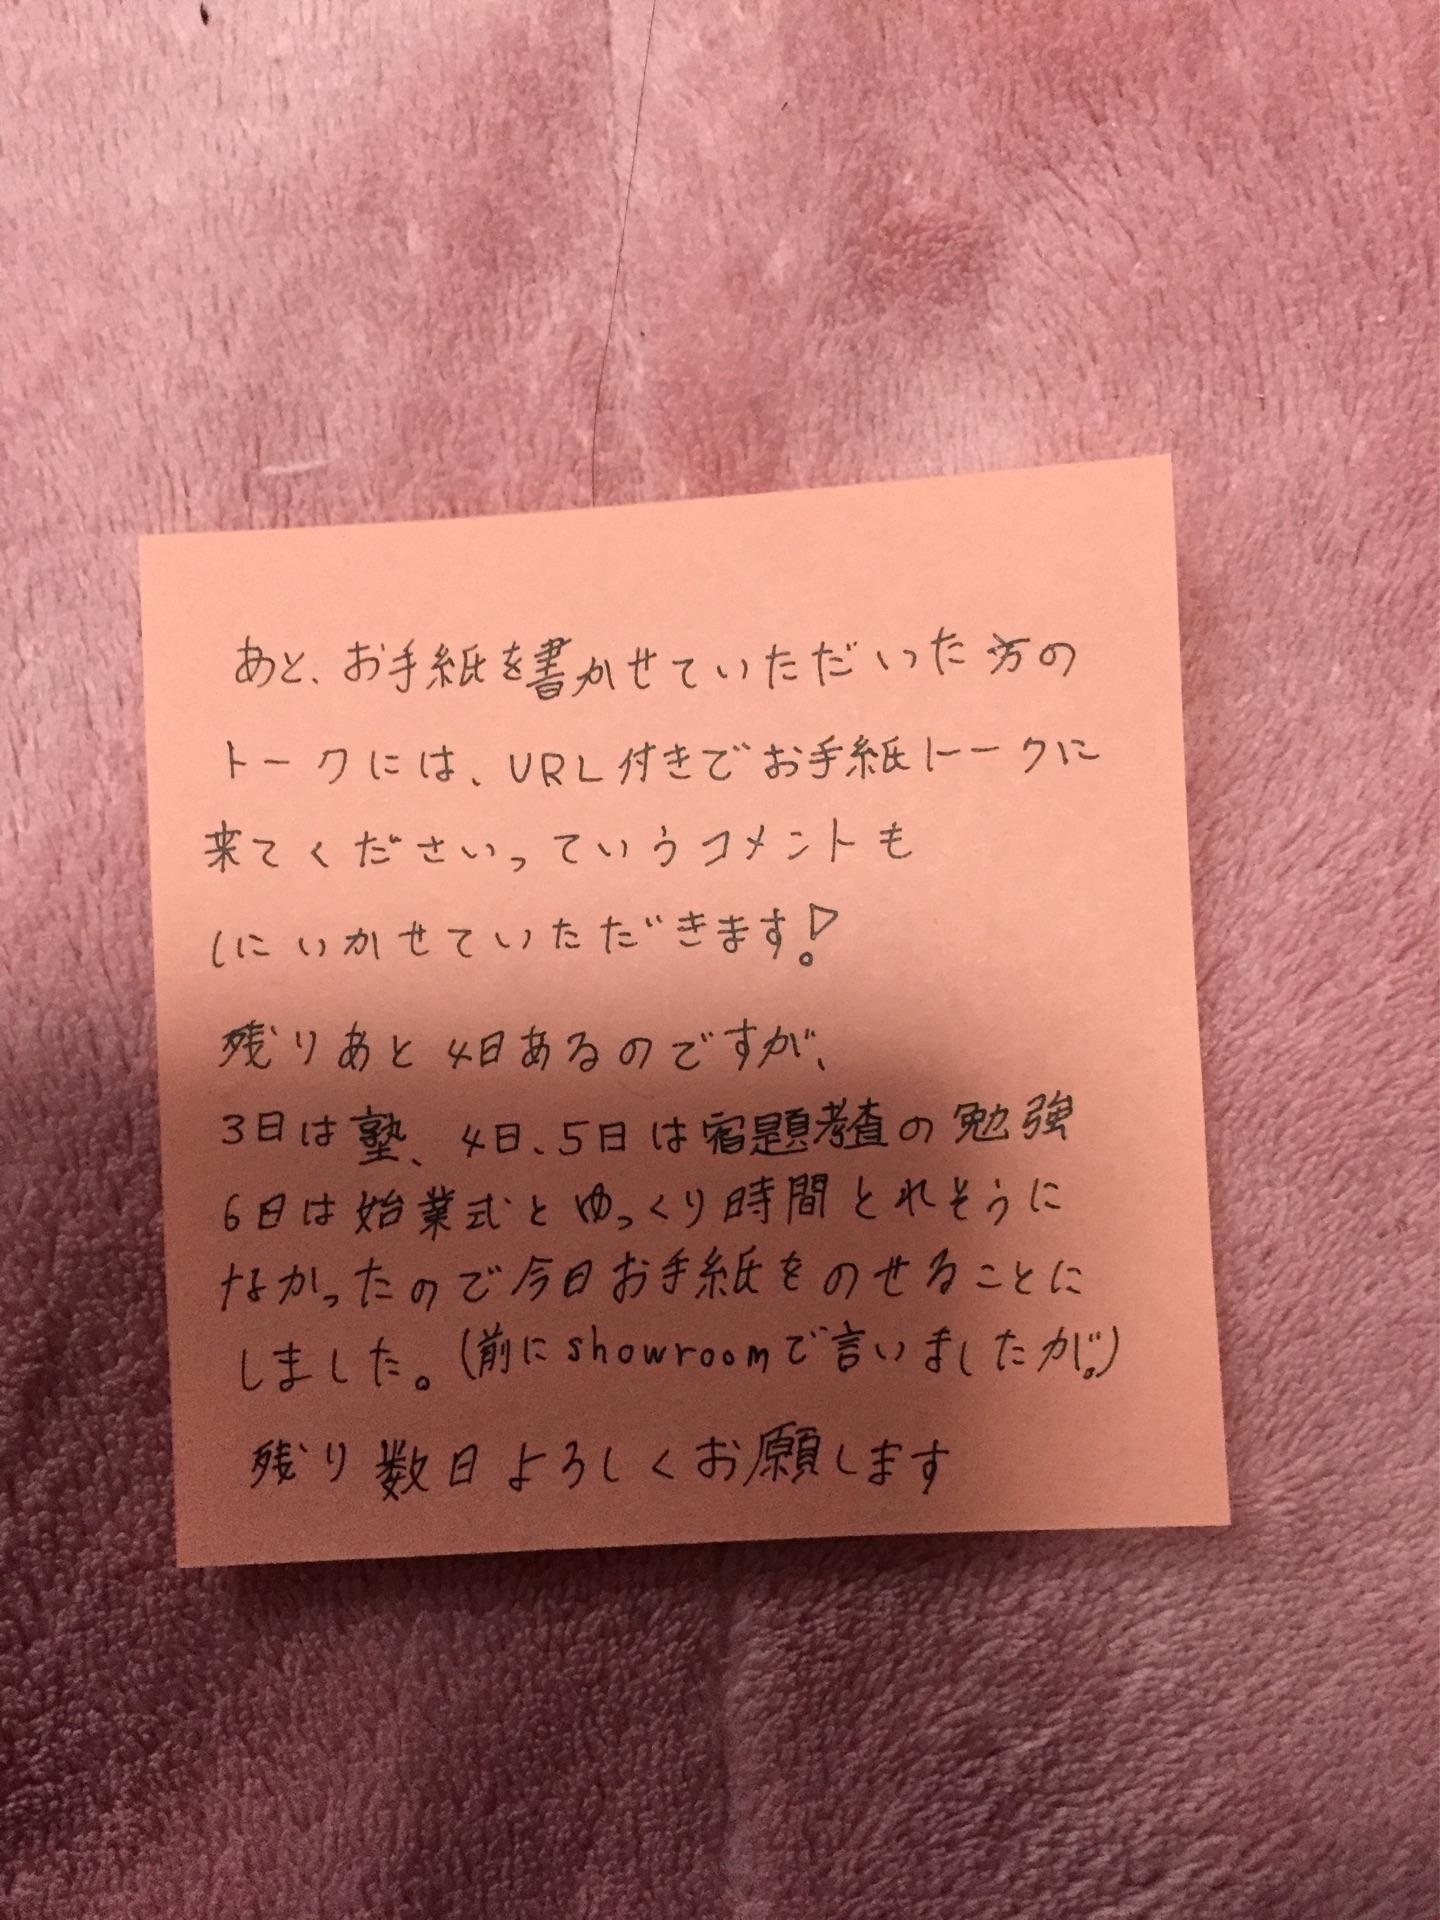 あと、お手紙を書かせていただいった方の
トークには、URL付きでお手紙トークに
来てくださいっていうコメントも
しにいかせていただきます!
残りあと4日あるのですが、
3日は塾、4日、5日は宿題考査の勉強
6日は始業式とゆっくり時間とれそうに
なかったので今日お手紙をのせることに
しました。(前にshowroomで言いましたが。)
残り数日よろしくお願します